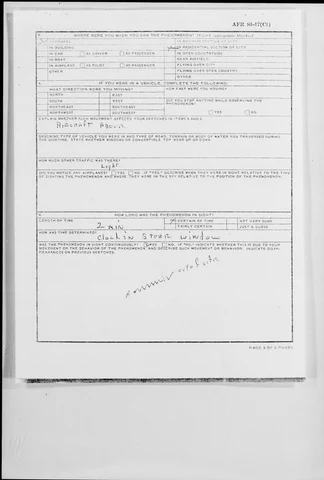 AFR 80-17(C1)
WHERE WERE YOU WHEN YOU SAW THE PHENOMENON?
IN BUILDING
IN RESIDENTIAL SECTION OF CITY
IN CAR AS DRIVER AS PASSENGER
IN OPEN COUNTRYSIDE
IN BOAT
NEAR AIRFIELD
IN AIRPLANE AS PILOT AS PASSENGER
FLYING OVER CITY
OTHER
FLYING OVER OPEN COUNTRY
OTHER
IF YOU WERE IN A VEHICLE, COMPLETE THE FOLLOWING:
WHAT DIRECTION WERE YOU MOVING?
HOW FAST WERE YOU MOVING?
NORTH EAST
SOUTH WEST
DID YOU STOP ANYTIME WHILE OBSERVING THE PHENOMENON?
NORTHEAST SOUTHEAST
NORTHWEST SOUTHWEST YES NO
DESCRIBE TYPE OF VEHICLE YOU WERE IN AND TYPE OF ROAD, TERRAIN OR BODY OF WATER YOU TRAVERSED DURING
THE SIGHTING. STATE WHETHER WINDOWS OR CONVERTIBLE TOP WERE UP OR DOWN.
HOW MUCH OTHER TRAFFIC WAS THERE?
Light
DID YOU NOTICE ANY AIRPLANES? YES NO. IF "YES," DESCRIBE WHEN THEY WERE IN SIGHT RELATIVE TO THE TIME
OF SIGHTING THE PHENOMENON AND WHERE THEY WERE IN THE SKY RELATIVE TO THE POSITION OF THE PHENOMENON.
HOW LONG WAS THE PHENOMENON IN SIGHT?
LENGTH OF TIME
CERTAIN OF TIME NOT VERY SURE
2 min
FAIRLY CERTAIN JUST A GUESS
HOW WAS TIME DETERMINED?
Clock in store window
WAS THE PHENOMENON IN SIGHT CONTINUOUSLY? YES NO. IF "NO," INDICATE WHETHER THIS IS DUE TO YOUR
MOVEMENT OR THE BEHAVIOR OF THE PHENOMENON AND DESCRIBE SUCH MOVEMENT OR BEHAVIOR. INDICATE DISAP-
PEARANCES ON PREVIOUS SKETCHES.